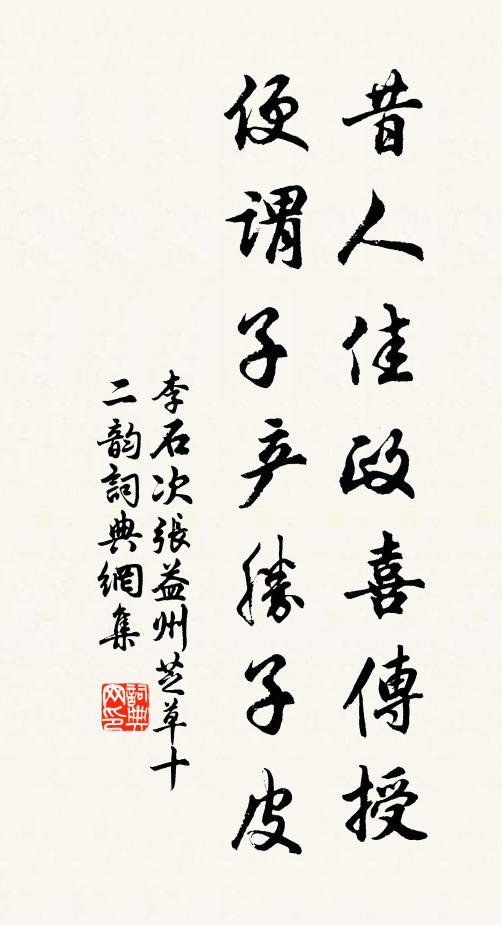 昔人佳政喜傳授
便謂子产勝子皮
李石次張益州芝草十
二韵詞典網集
詞典
网印